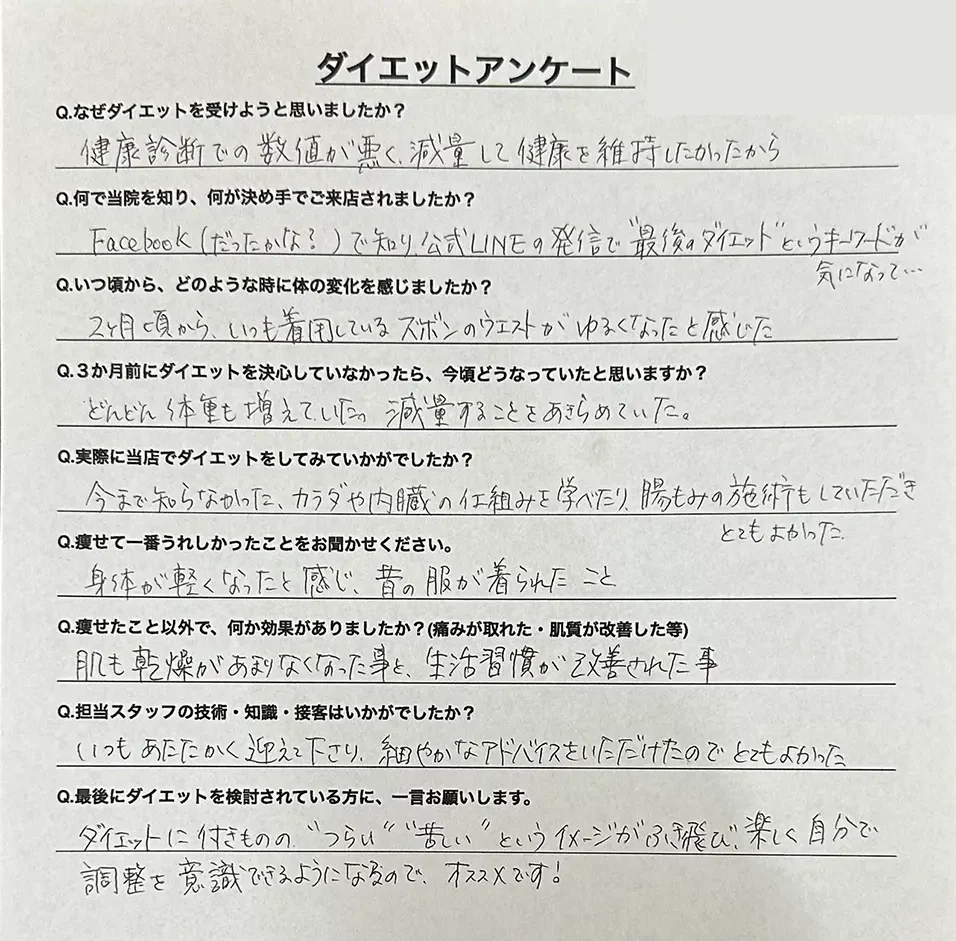 ダイエットアンケート
Q.なぜダイエットを受けようと思いましたか？
健康診断での数値が悪く、減量して健康を維持したかったから
Q.何で当院を知り、何が決め手でご来店されましたか？
Facebook (だったかな？)で知り、公式LINEの発信で"最後のダイエット"というキーワードが
気になって…
Q.いつ頃から、どのような時に体の変化を感じましたか？
2ヶ月頃から、いつも着用しているズボンのウエストがゆるくなったと感じた
Q.３か月前にダイエットを決心していなかったら、今頃どうなっていたと思いますか？
どんどん体重も増えていた。減量することをあきらめていた。
Q.実際に当店でダイエットをしてみていかがでしたか？
今まで知らなかった、カラダや内臓の仕組みを学べたり、腸もみの施術もしていただき
とてもよかった.
Q.痩せて一番うれしかったことをお聞かせください。
身体が軽くなったと感じ、昔の服が着られたこと
Q.痩せたこと以外で、何か効果がありましたか？(痛みが取れた・肌質が改善した等)
肌も乾燥があまりなくなった事と、生活習慣が改善された事
Q.担当スタッフの技術・知識・接客はいかがでしたか？
いつもあたたかく迎えて下さり、細やかなアドバイスをいただけたのでとてもよかった
Q.最後にダイエットを検討されている方に、一言お願いします。
ダイエットに付きものの、"つらい" "苦しい" というイメージがふき飛び、楽しく自分で
調整を意識できるようになるので、オススメです！